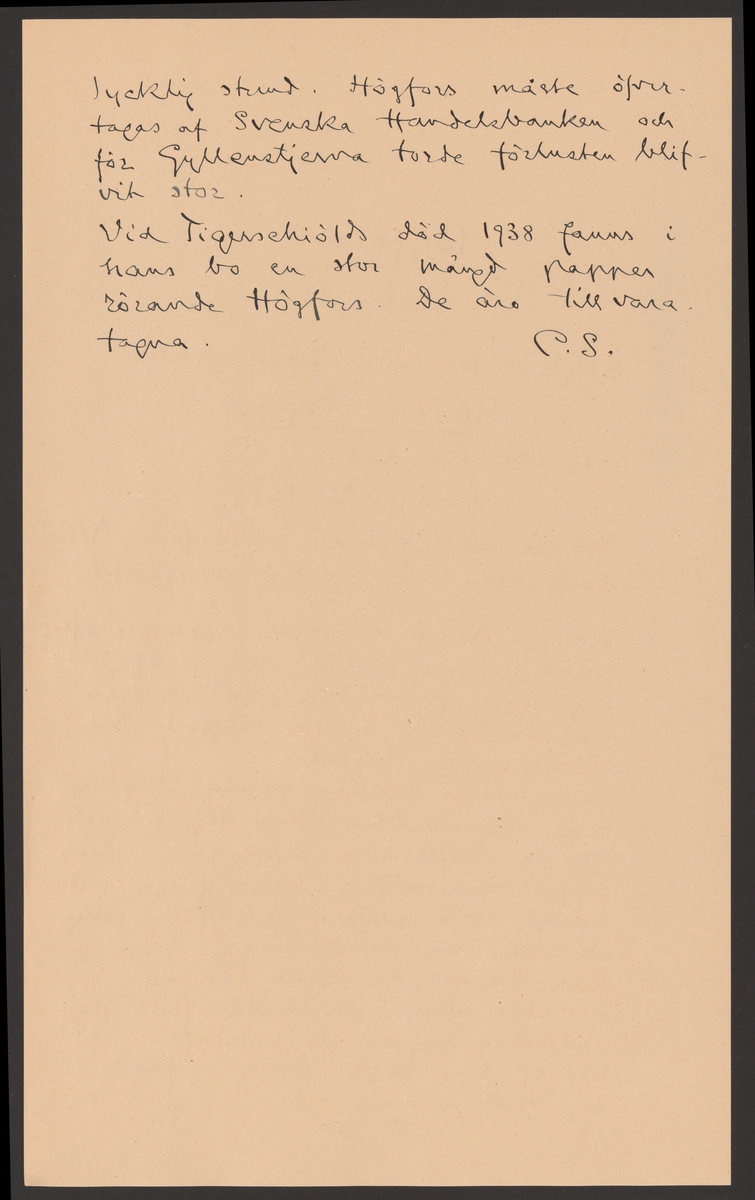 lycklig stund. Högfors måste öfver-
tagas af Svenska Handelsbanken och
för Gyllenstjerna torde förlusten blif-
vit stor.
Vid Tigerschiölds död 1938 fanns i
hans bo en stor mängd papper
rörande Högfors. De äro till vara-
tagna. C.S.